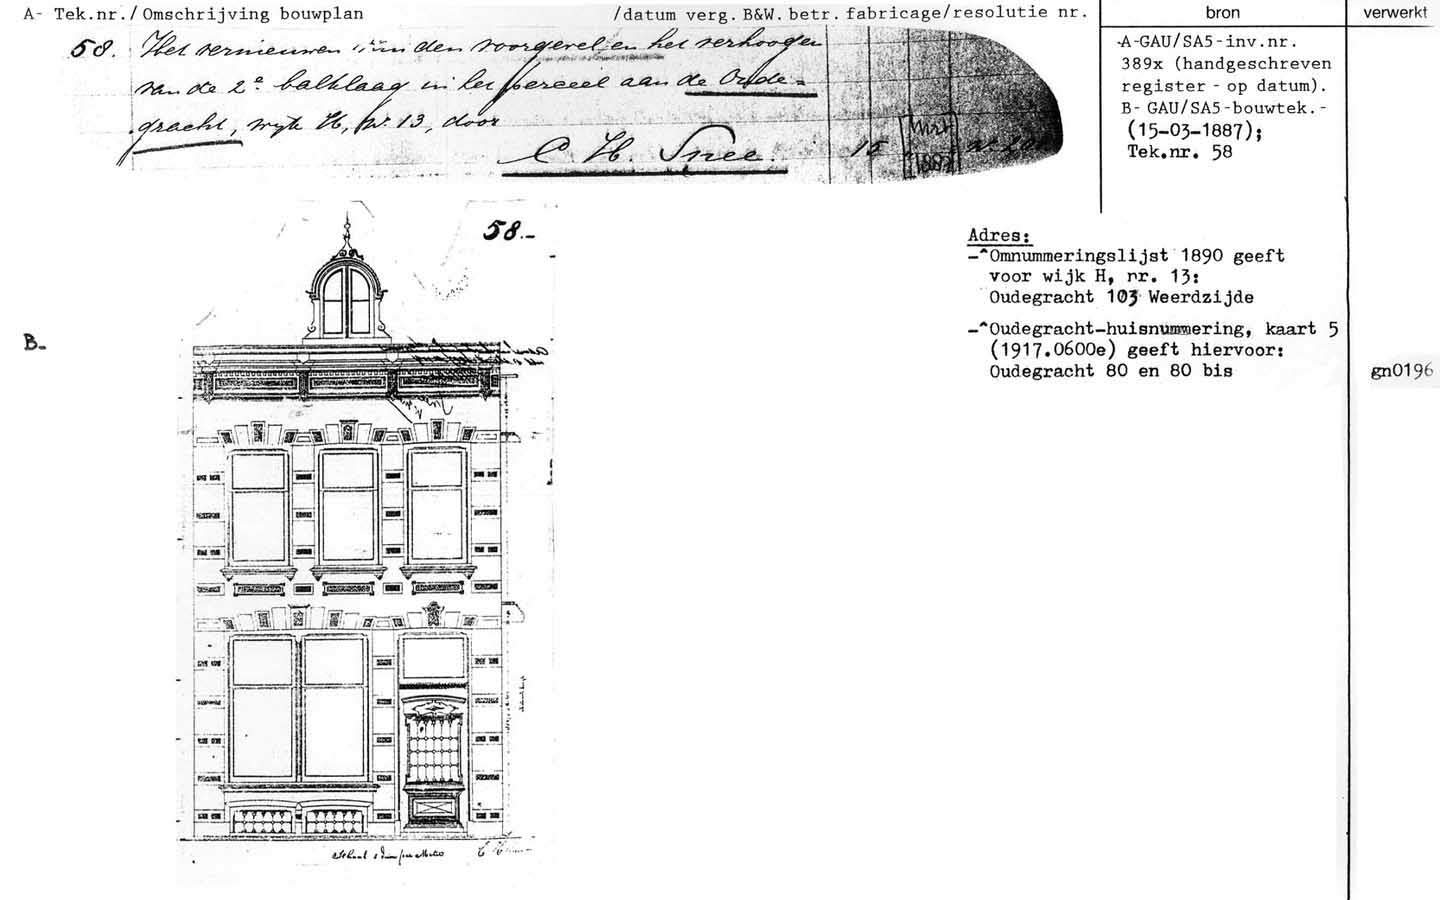 A- Tek.nr./Omschrijving bouwplan /datum verg. B&W. betr. fabricage/resolutie nr. bron verwerkt
58. Het vernieuwen van den voorgevel en het verhoogen
van de 2e balklaag in het perceel aan de Oude=
gracht, wyk H, No 13, door
C. H. Snee. 15 Mrt 1887
-A-GAU/SA5-inv.nr.
389x (handgeschreven
register - op datum).
B- GAU/SA5-bouwtek.-
(15-03-1887);
Tek.nr. 58
58.-
Adres:
-^Omnummeringslijst 1890 geeft
voor wijk H, nr. 13:
Oudegracht 103 Weerdzijde
-^Oudegracht-huisnummering, kaart 5
(1917.0600e) geeft hiervoor:
Oudegracht 80 en 80 bis
gn0196
B-